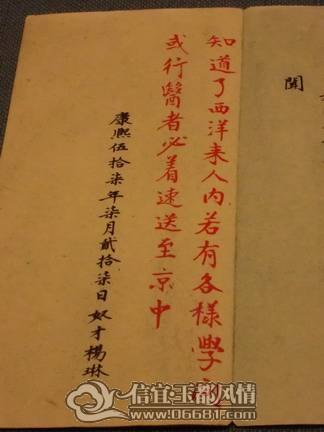 知道了西洋来人内若有各樣學問
或行醫者必着速送至京中
康熙伍拾柒年柒月貳拾柒日奴才楊琳
信宜玉都风情
www.06681.com